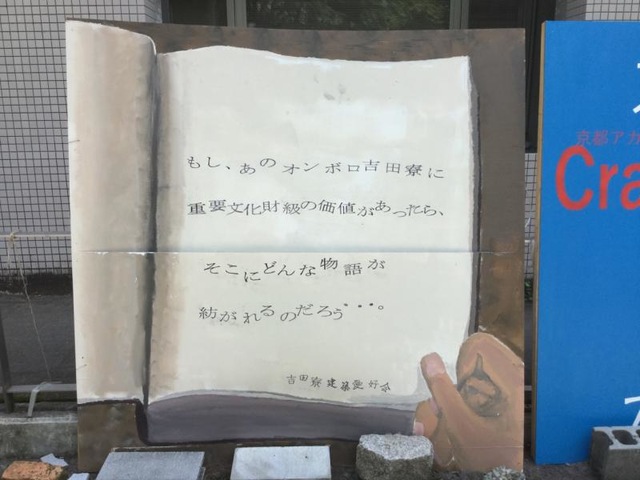 もし、あのオンボロ吉田寮に
重要文化財級の価値があったら、
そこにどんな物語が
紡がれるのだろう・・・。
吉田寮建築愛好会
京都アカ
Cra